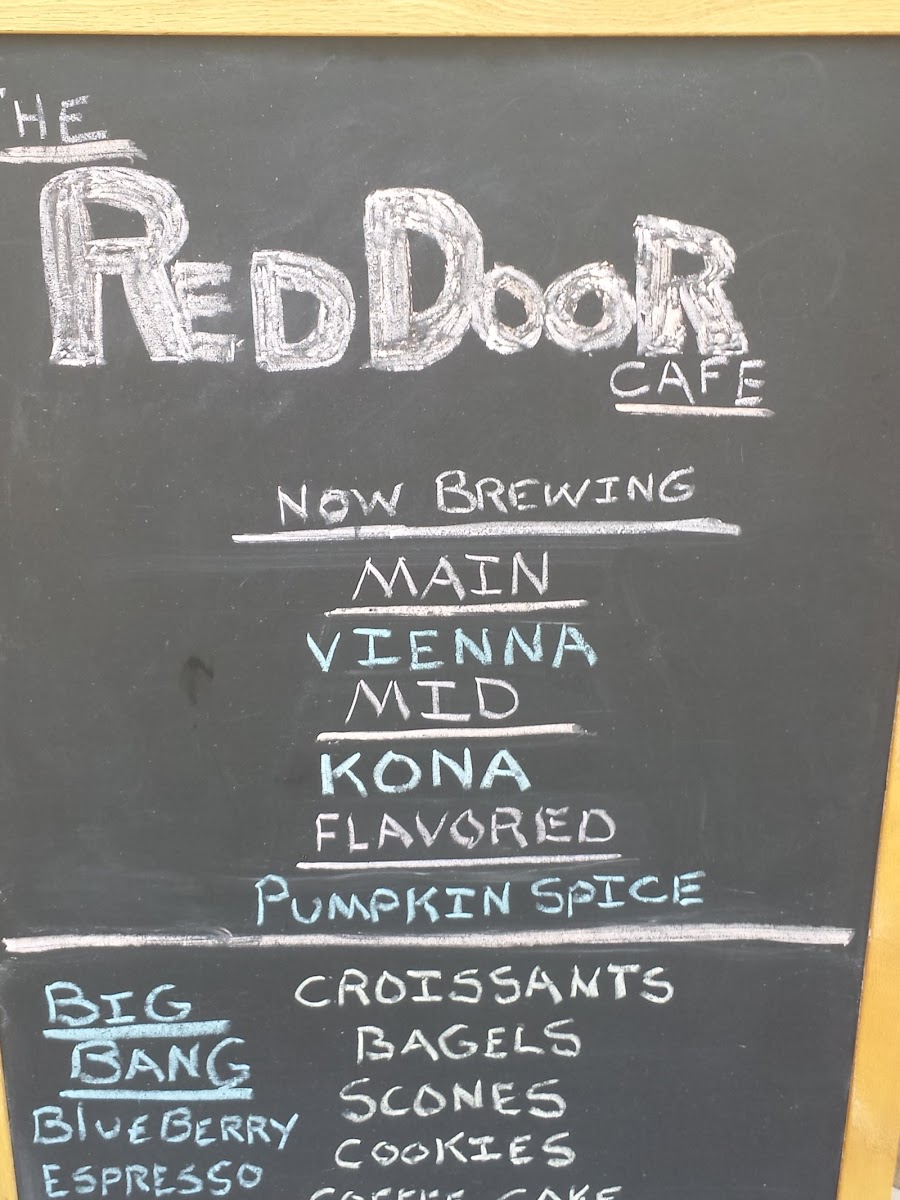 THE
RED DOOR
CAFE
NOW BREWING
MAIN
VIENNA
MID
KONA
FLAVORED
PUMPKIN SPICE
BIG
BANG
BLUEBERRY
ESPRESSO
CROISSANTS
BAGELS
SCONES
COOKIES
COFFEE CAKE